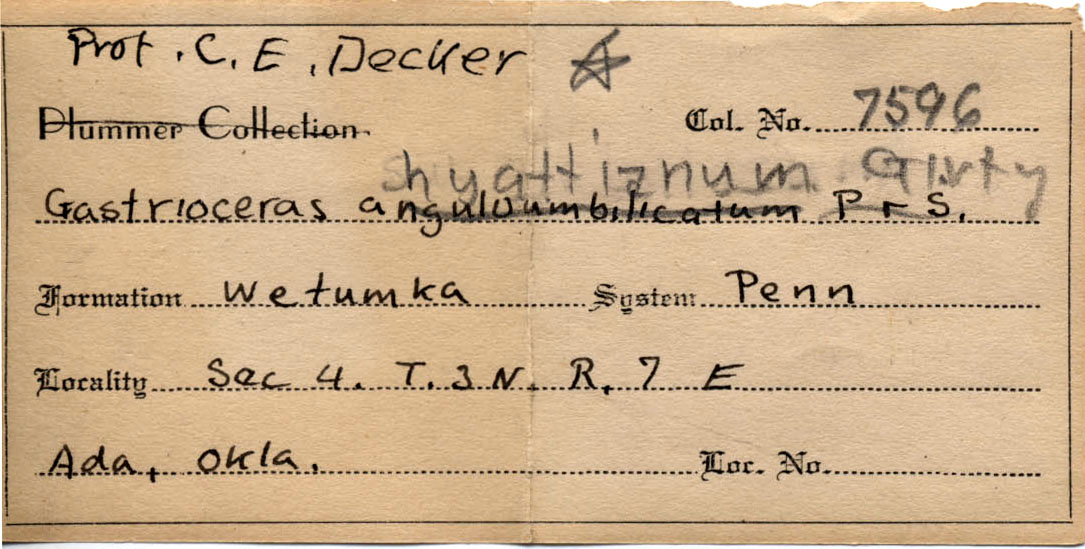 Prof. C. E. Decker
Plummer Collection Col. No. 7596
hyattianum Girty
Gastrioceras anguloumbilicatum P & S.
Formation Wetumka System Penn
Locality Sec 4. T. 3 N. R. 7 E
Ada, Okla. Loc. No.